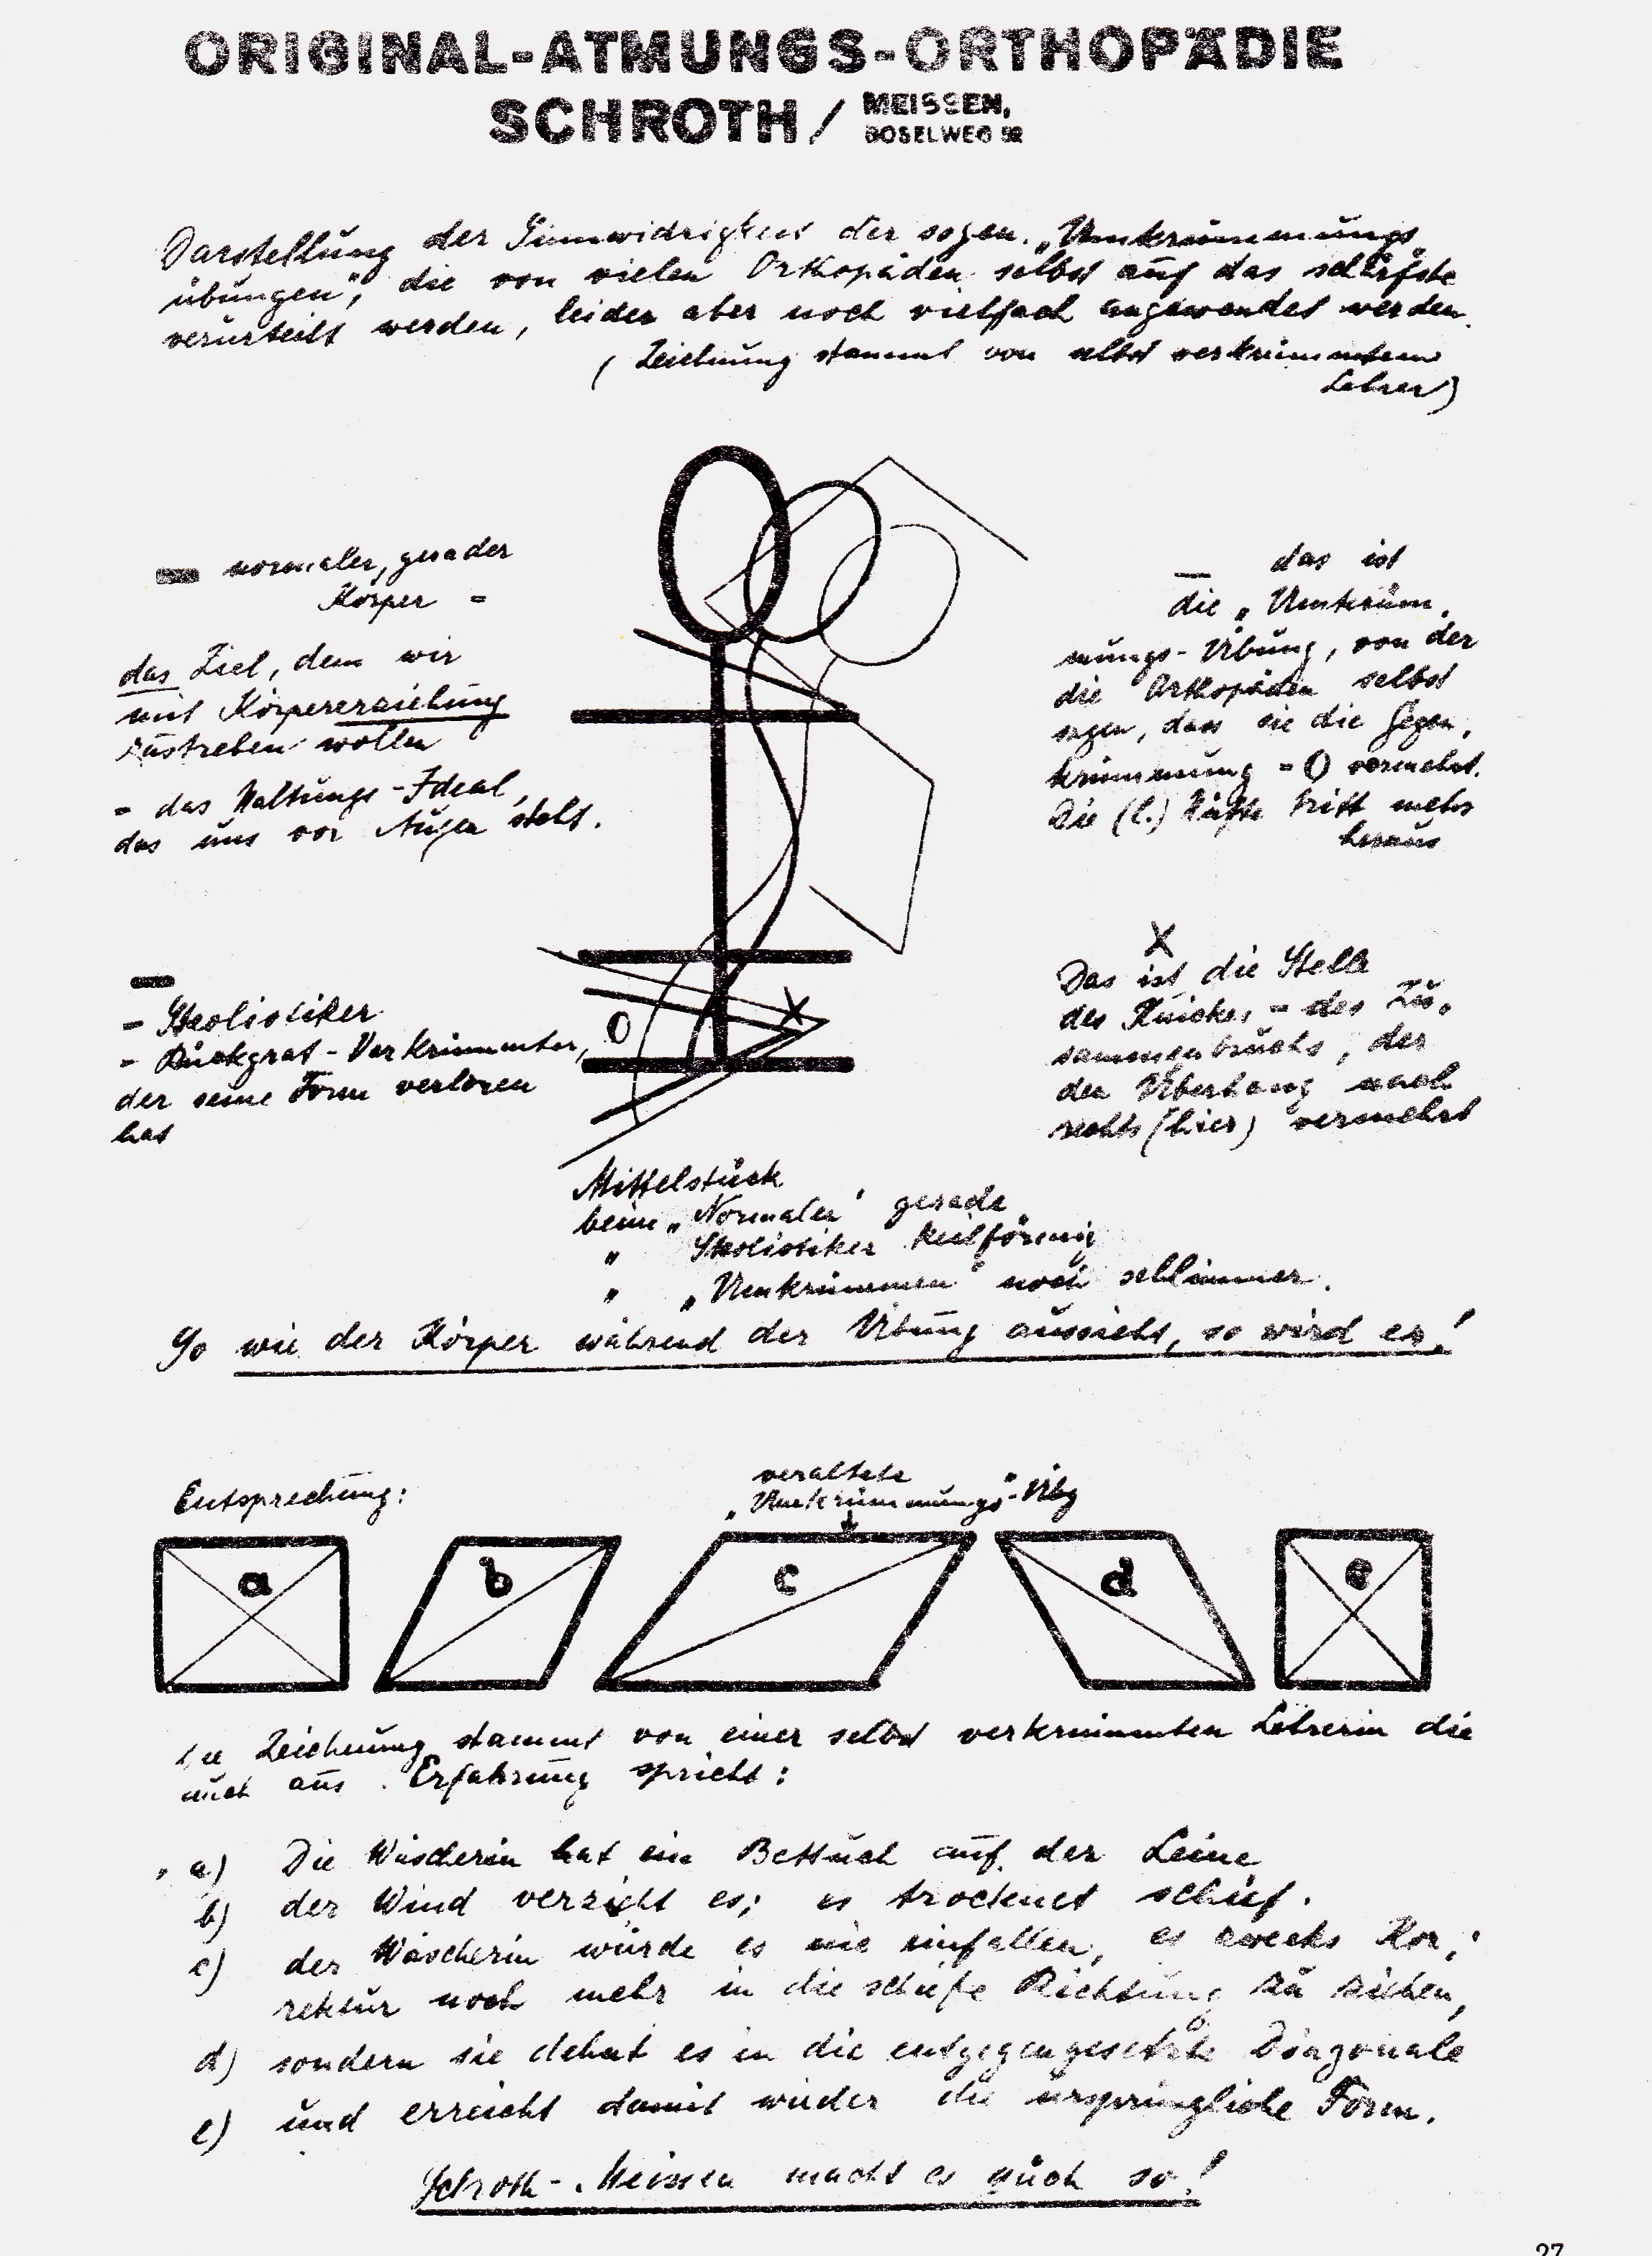 ORIGINAL-ATMUNGS-ORTHOPÄDIE
SCHROTH / MEISSEN,
BOSELWEG 52
Darstellung der Sinnwidrigkeit der sogen. „Umkrümmungs
übungen", die von vielen Orthopäden selbst auf das schärfste
verurteilt werden, leider aber noch vielfach angewendet werden.
(Zeichnung stammt von selbst verkrümmtem
Lehrer)
normaler, gerader
Körper -
das Ziel, dem wir
mit Körpererziehung
zustreben wollen
- das Haltungs-Ideal,
das uns vor Augen steht.
das ist
die „Umkrüm-
mungs-Übung, von der
die Orthopäden selbst
sagen, dass sie die Gegen-
krümmung - O vermehrt.
Die (l.) Hüfte tritt mehr
heraus
- Skoliotiker
- Rückgrat-Verkrümmter,
der seine Form verloren
hat
O
X
X
Das ist die Stelle
des Knickes - des Zu-
sammenbruchs, der
den Überhang nach
rechts (hier) vermehrt
Mittelstück
beim „Normalen" gerade
" Skoliotiker keilförmig
" „Umkrümmen" noch schlimmer.
So wie der Körper während der Übung aussieht, so wird er!
Entsprechung:
veraltete
„Umkrümmungs"-Übg
a b c d e
Die Zeichnung stammt von einer selbst verkrümmten Lehrerin die
auch aus Erfahrung spricht:
a) Die Wäscherin hat ein Bettuch auf der Leine
b) der Wind verzieht es; es trocknet schief.
c) der Wäscherin würde es nie einfallen, es zwecks Kor-
rektur noch mehr in die schiefe Richtung zu ziehen,
d) sondern sie dehnt es in die entgegengesetzte Diagonale
e) und erreicht damit wieder die ursprüngliche Form.
Schroth-Meissen macht es auch so!
27